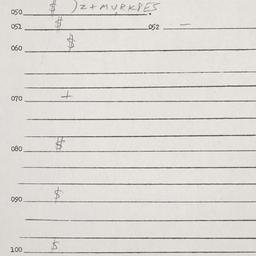 050 $ )z+MURKPES.
051 $ 052 –
060 $
070 +
080 $
090 $
100 $